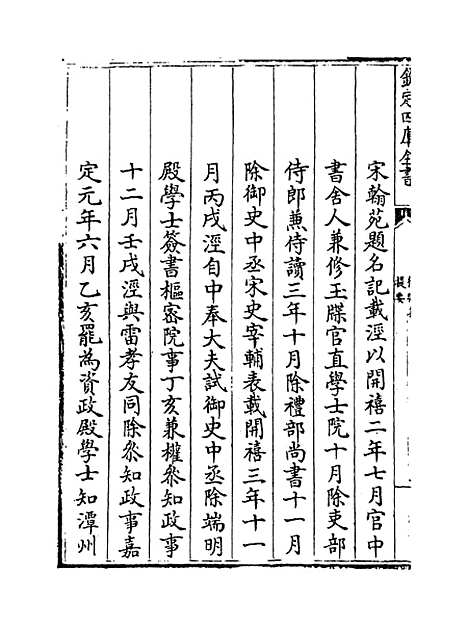 欽定四庫全書
提要
宋翰苑題名記載涇以開禧二年七月官中
書舍人兼修玉牒官直學士院十月除吏部
侍郎兼侍讀三年十月除禮部尚書十一月
除御史中丞宋史宰輔表載開禧三年十一
月丙戌涇自中奉大夫試御史中丞除端明
殿學士簽書樞密院事丁亥兼權叅知政事
十二月壬戌涇與雷孝友同除叅知政事嘉
定元年六月乙亥罷為資政殿學士知潭州